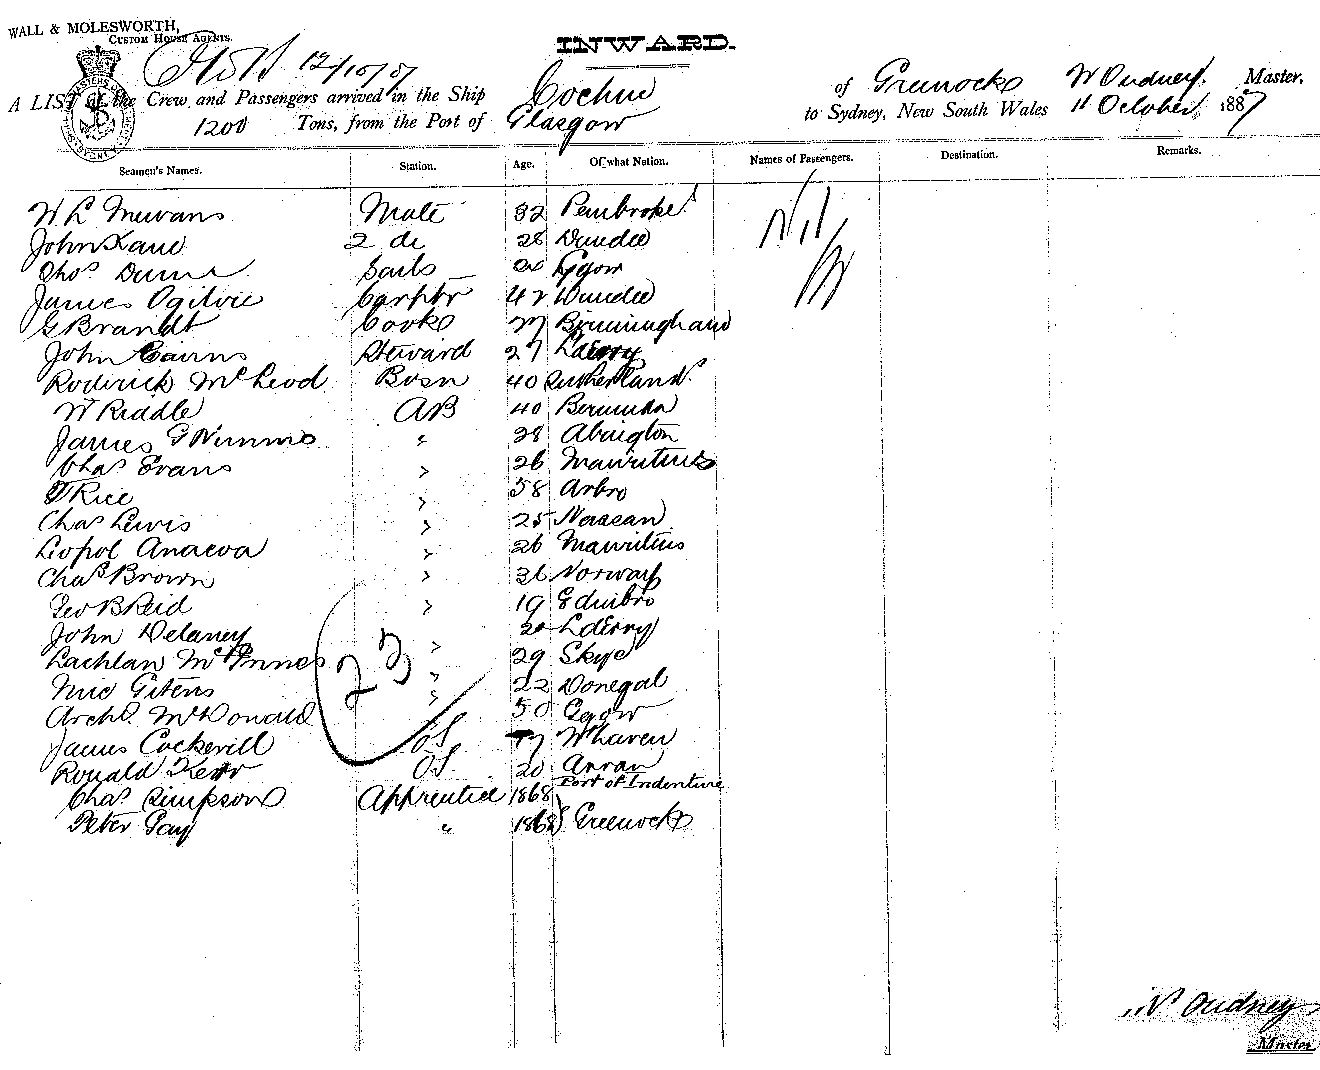 WALL & MOLESWORTH,
CUSTOM HOUSE AGENTS.
INWARD.
12/10/87
A LIST of the Crew and Passengers arrived in the Ship Cochin of Greenock W Oudney Master,
1200 Tons, from the Port of Glasgow to Sydney, New South Wales 11 October 1887
Seamen's Names. Station. Age. Of what Nation. Names of Passengers. Destination. Remarks.
Mate 32 Pembroke Nil
John Kane 2 do 28 Dundee
Thos Sails Ggow
James Ogilvie Carptr 42 Dundee
G Brandt Cooke 27 Birmingham
John Cairns Steward 27 Lderry
Roderick McLeod Bosn 40 Sutherland
W Riddle AB 40 Bermuda
James G Nimmo " 28 Abington
Chas Evans " 26 Mauritius
Rice " 58 Arbro
Chas Lewis " 25
Leopol " 26 Mauritius
Chas Brown " Norway
Geo B Reid " 19 Edinbro
John Delaney " Lderry
Lachlan McInnes " 29 Skye
" 22 Donegal
Archd. McDonald 50 Ggow
James Cockerill OS 17 Whaven
Ronald Kerr OS 20 Arran
Port of Indenture
Chas Simpson Apprentice 1868
Peter Gay " 1868 Greenock
23
W Oudney
Master